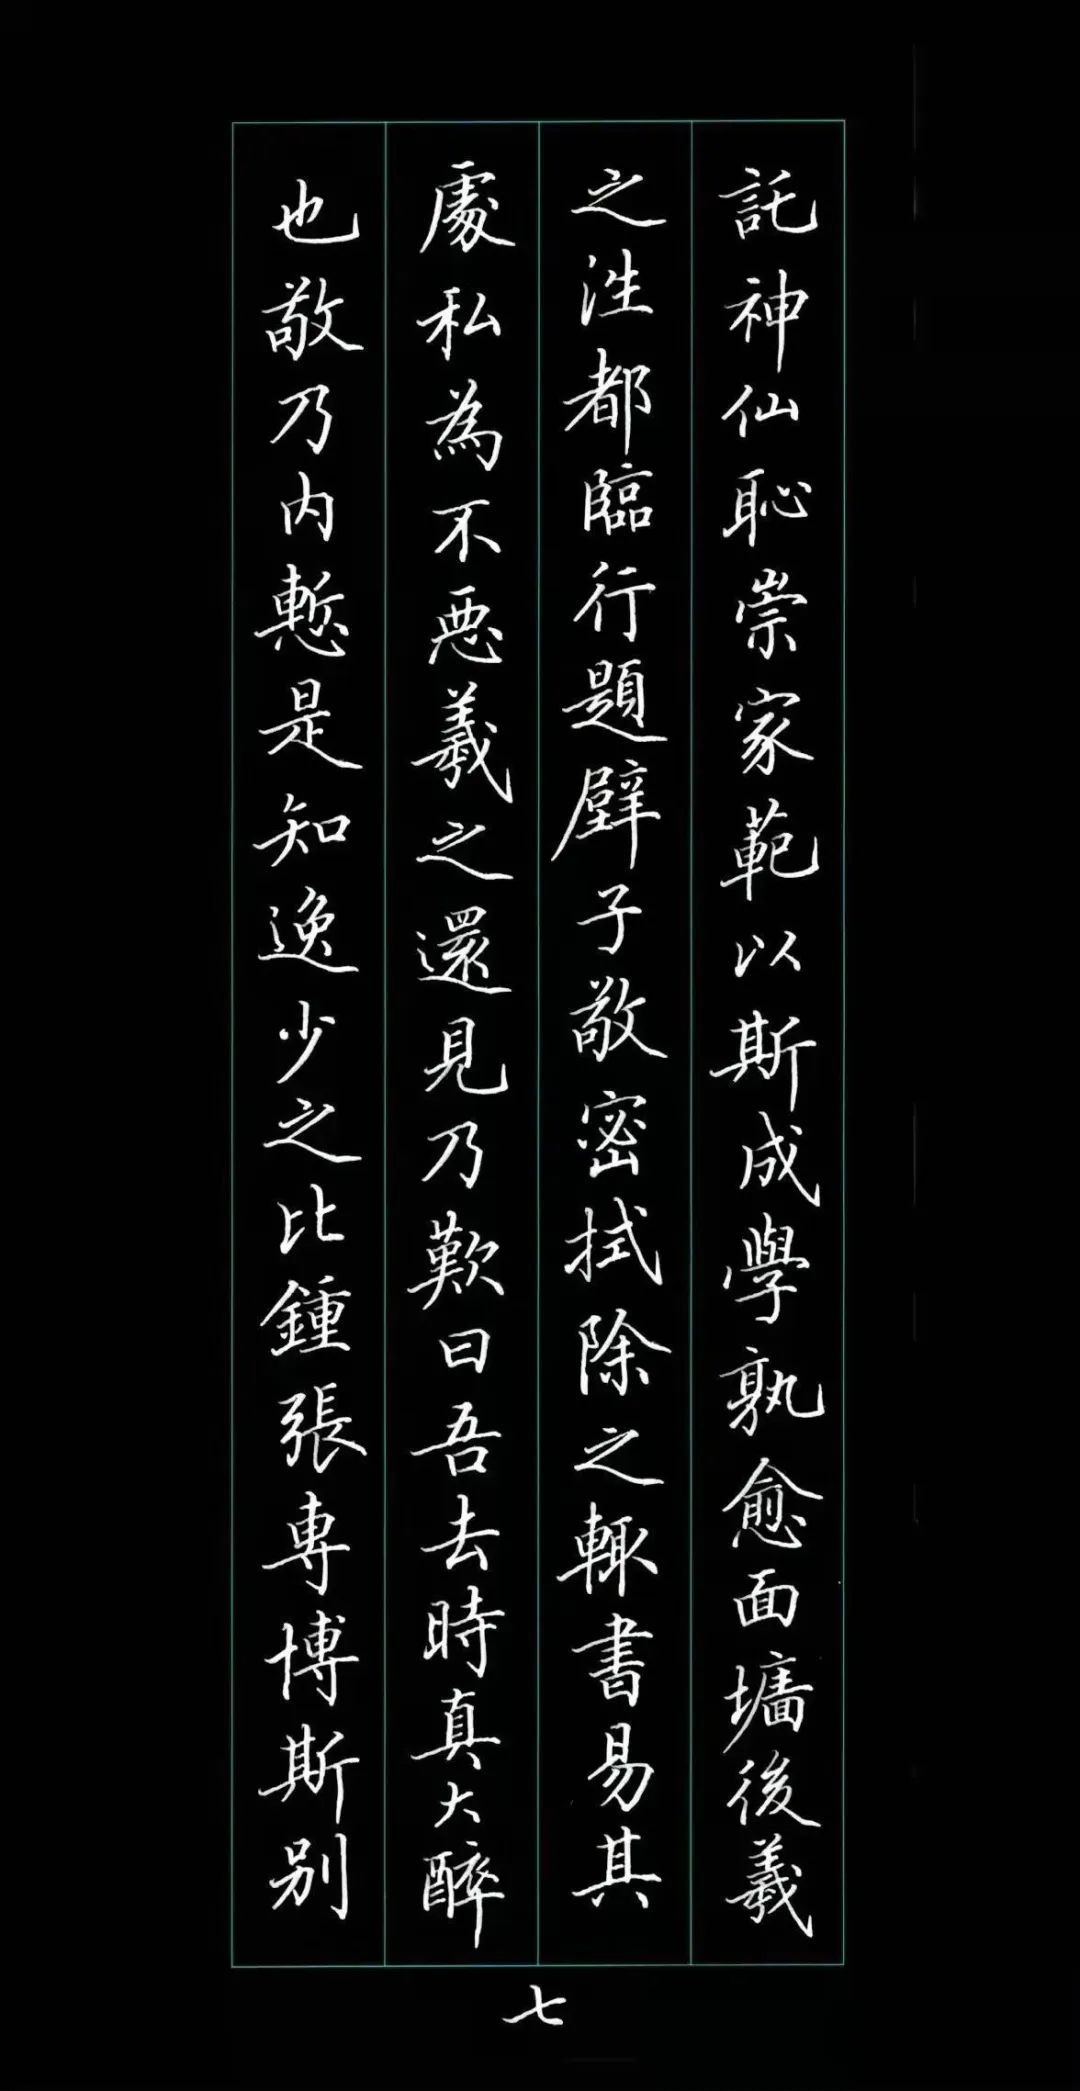 託神仙恥崇家範以斯成學孰愈面墻後羲
之往都臨行題壁子敬密拭除之輒書易其
處私為不惡羲之還見乃歎曰吾去時真大醉
也敬乃內慙是知逸少之比鍾張專博斯別
七